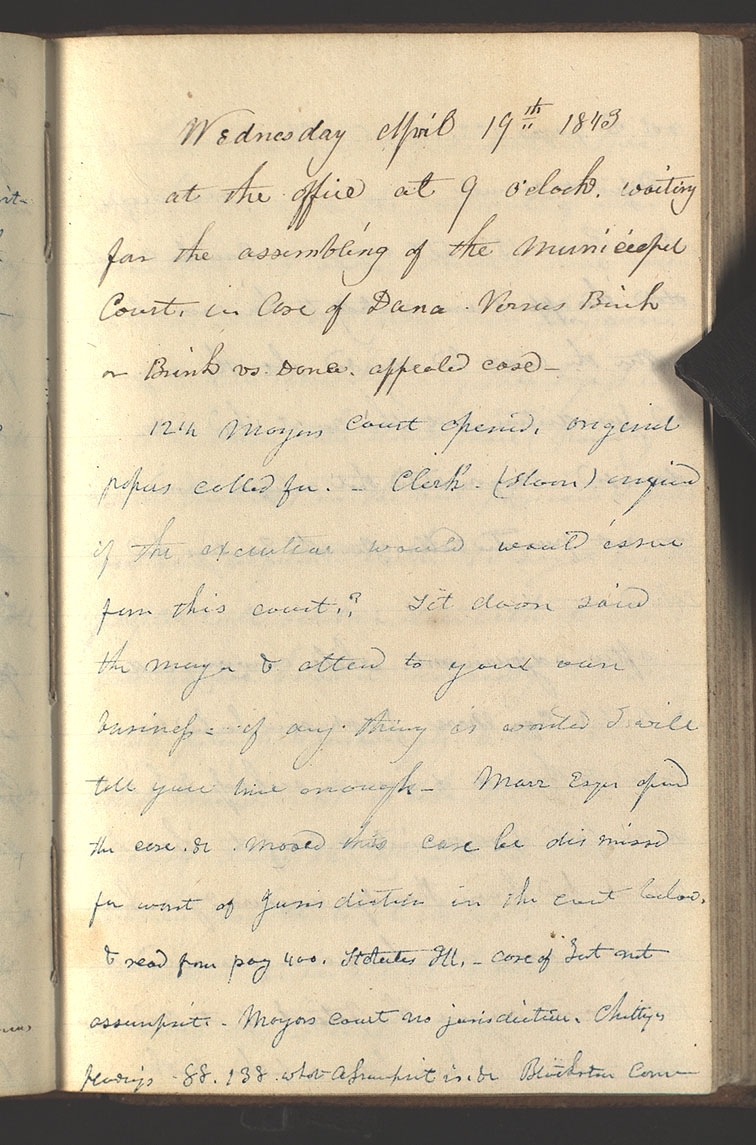 Wednesday April 19th 1843
at the office at 9 o'clock. waiting
for the assembling of the Municipal
Court. in Case of Dana. Versus Brink
or Brink vs. Dana. appealed case—
12th Mayors Court opened, original
papers called for. — Clerk. (Sloan) enquired
if the execution would would issue
from this court.? Sit down said
the mayor & attend to your own
business = if any thing is wanted I will
tell you time enough— Marr Esqr opened
the case. & moved this case be dismissed
for want of Jurisdiction in the court below.
& read from pag 400. Statutes Ill. — case of not
assumpsit. — Mayors court no jurisdiction. Chittys
pleadings 88. 138. what Assumpsit is. & Blackston Com—